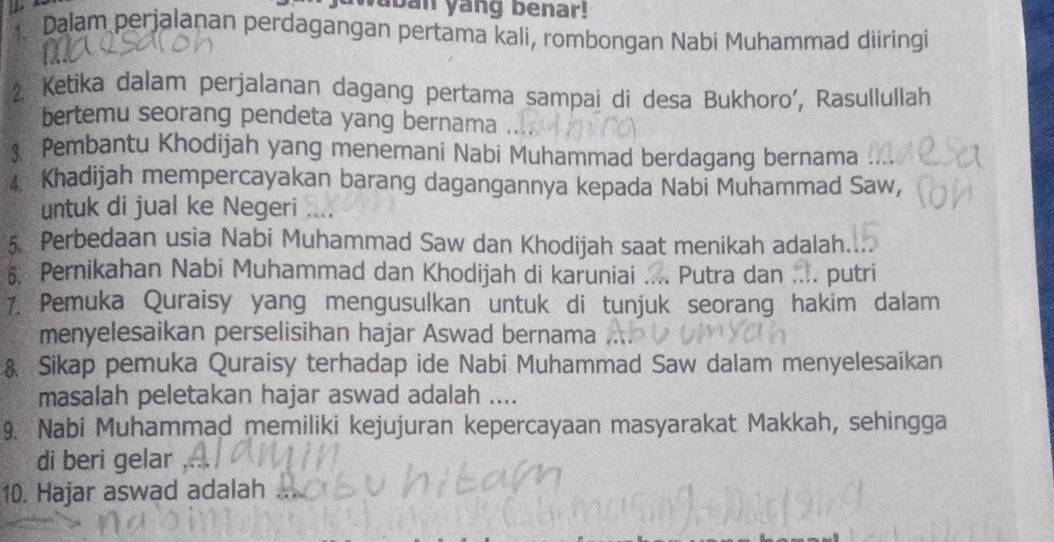 yang benar!
1. Dalam perjalanan perdagangan pertama kali, rombongan Nabi Muhammad diiringi
.... maesaroh
2. Ketika dalam perjalanan dagang pertama sampai di desa Bukhoro', Rasullullah
bertemu seorang pendeta yang bernama ....
3. Pembantu Khodijah yang menemani Nabi Muhammad berdagang bernama .... maesa
4. Khadijah mempercayakan barang dagangannya kepada Nabi Muhammad Saw, roh
untuk di jual ke Negeri ....
5. Perbedaan usia Nabi Muhammad Saw dan Khodijah saat menikah adalah.... 15
6. Pernikahan Nabi Muhammad dan Khodijah di karuniai .... Putra dan .... putri
7. Pemuka Quraisy yang mengusulkan untuk di tunjuk seorang hakim dalam
menyelesaikan perselisihan hajar Aswad bernama .... Abu umyah
8. Sikap pemuka Quraisy terhadap ide Nabi Muhammad Saw dalam menyelesaikan
masalah peletakan hajar aswad adalah ....
9. Nabi Muhammad memiliki kejujuran kepercayaan masyarakat Makkah, sehingga
di beri gelar .... Alamin
10. Hajar aswad adalah .... Batu hitam